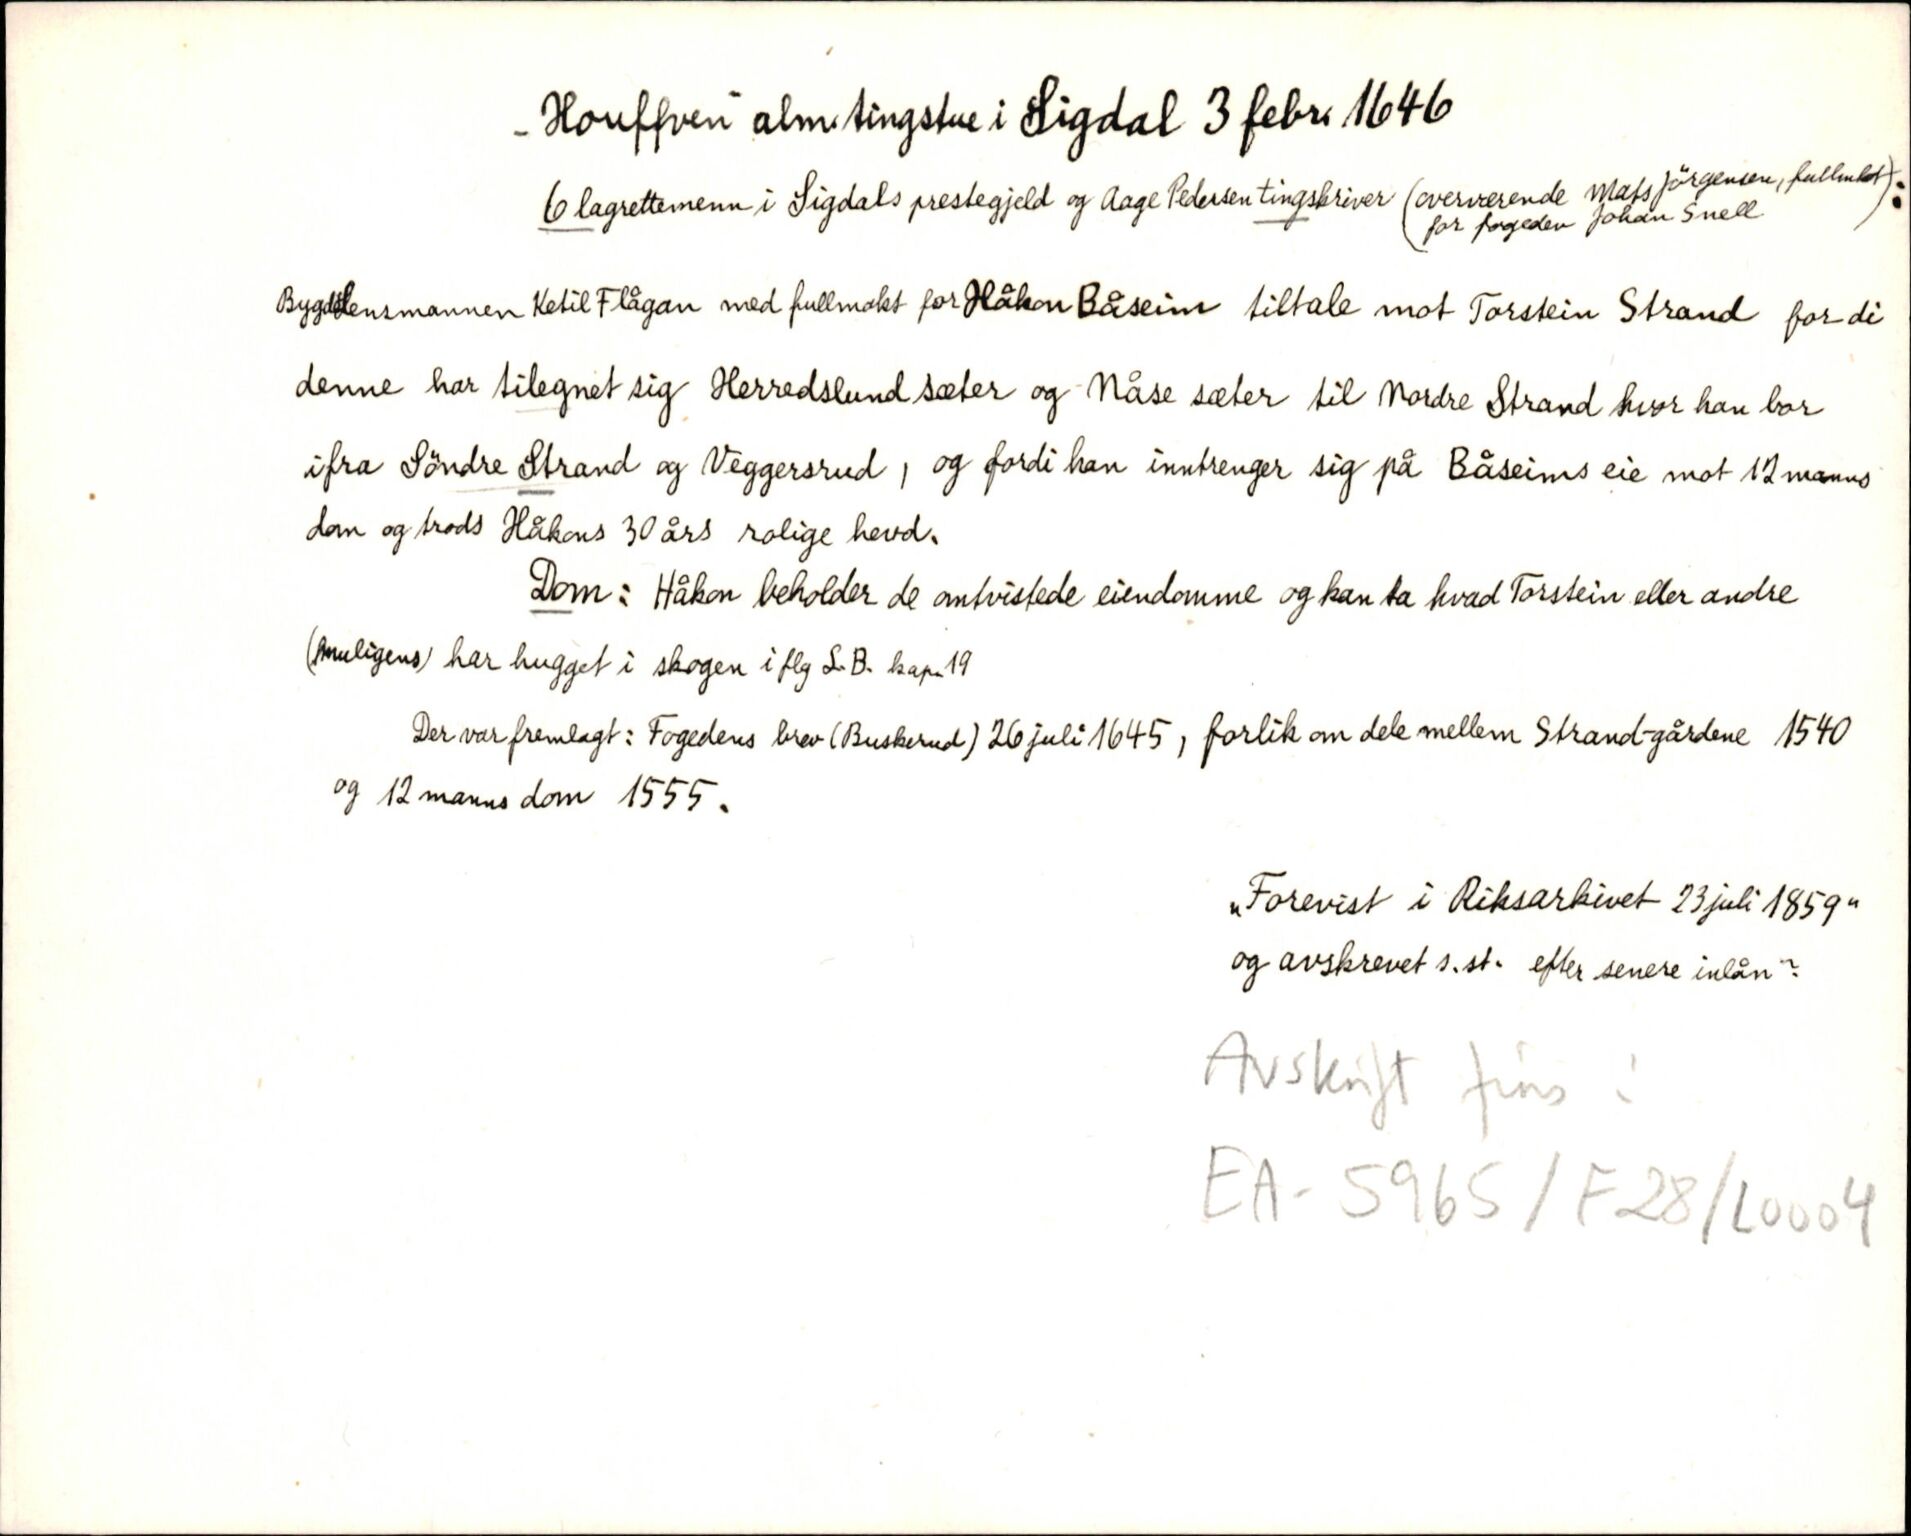 - Houffven alm. tingstue i Sigdal 3 febr. 1646
6 lagrettemenn i Sigdals prestegjeld og Aage Pedersen tingskriver (overværende Mats Jörgensen, fullmkt)
for fogeden Johan Snell :
Bygdelensmannen Ketil Flågan med fullmakt for Håkon Båseim tiltale mot Torstein Strand for di
denne har tilegnet sig Herredslund sæter og Nåse sæter til Nordre Strand hvor han bor
ifra Söndre Strand og Veggersrud, og fordi han inntrenger sig på Båseims eie mot 12 manns
dom og trods Håkons 30 års rolige hevd.
Dom: Håkon beholder de omtvistede eiendomme og kan ta hvad Torstein eller andre
(muligens) har hugget i skogen iflg L. B. kap. 19
Der var fremlagt: Fogedens brev (Buskerud) 26 juli 1645, forlik om dele mellem Strand-gårdene 1540
og 12 manns dom 1555.
„Forevist i Riksarkivet 23 juli 1859"
og avskrevet s. st. efter senere inlån.
Avskrift fins i
EA- 5965/F28/L0004